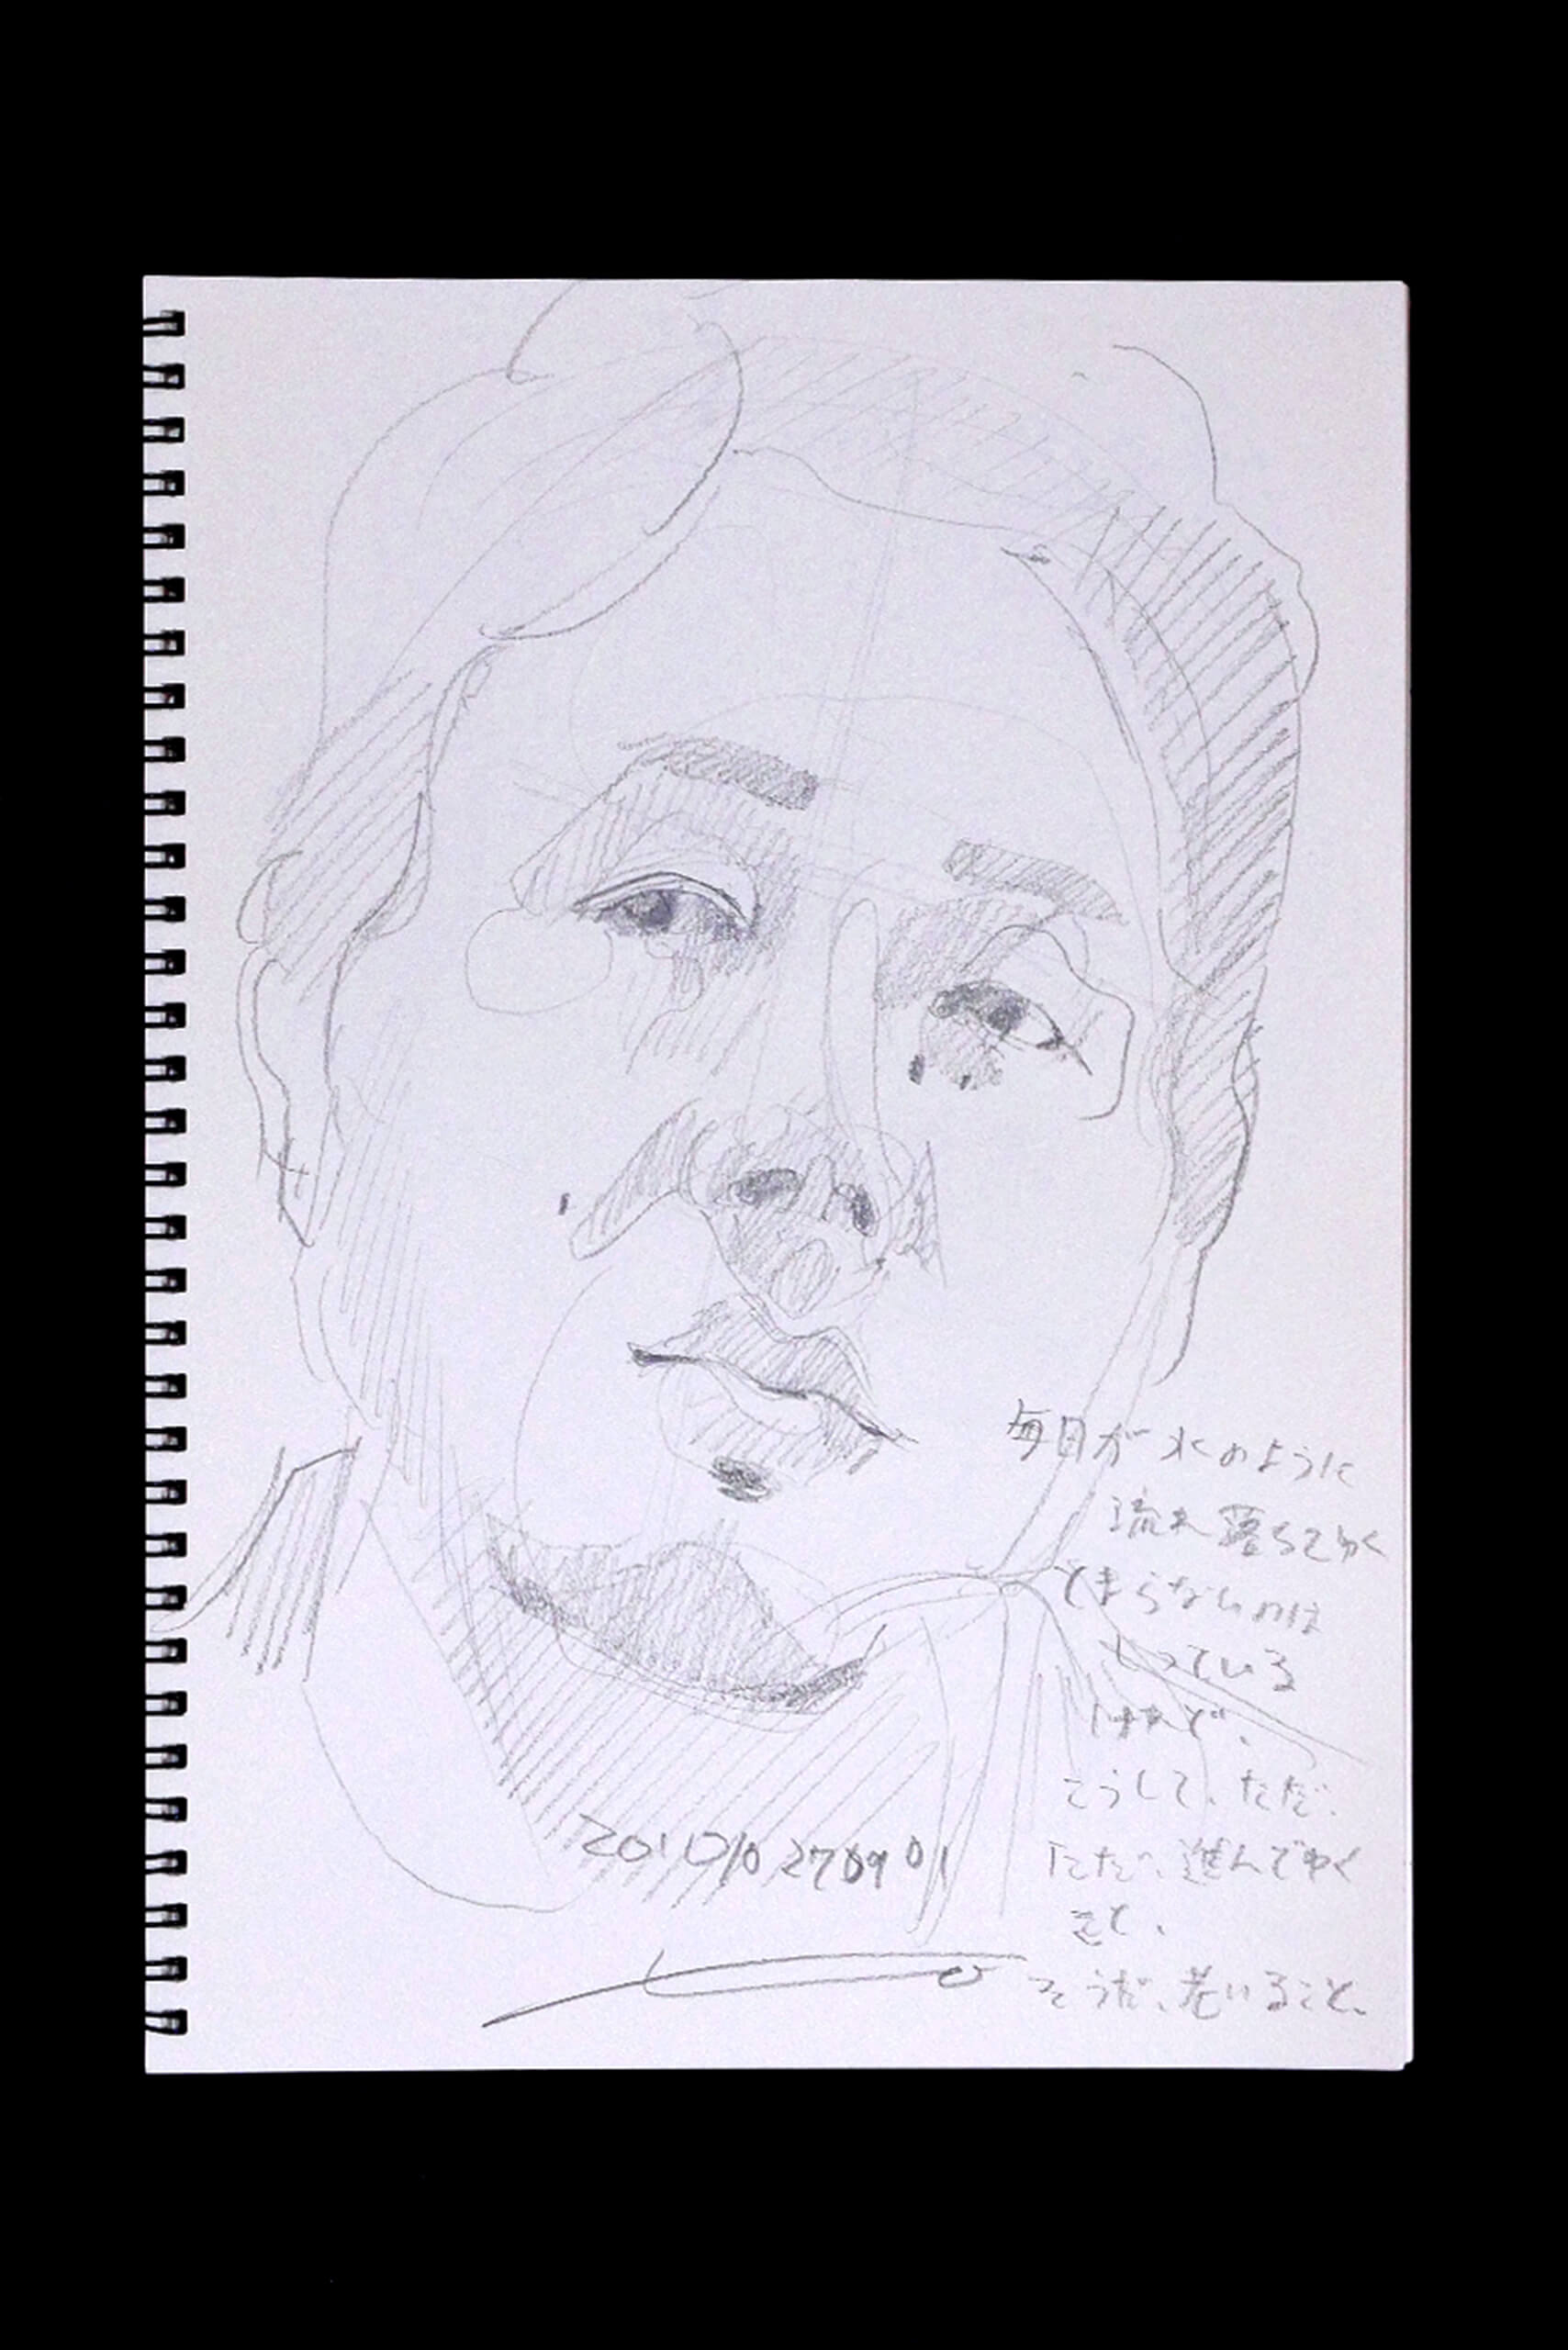 毎日が水のように
流れ落ちてゆく
とまらないのは
しっている
けれど、
こうして、ただ、
ただ、進んでゆく
きと、
そうだ、老いること、
2010/10 27 09 01